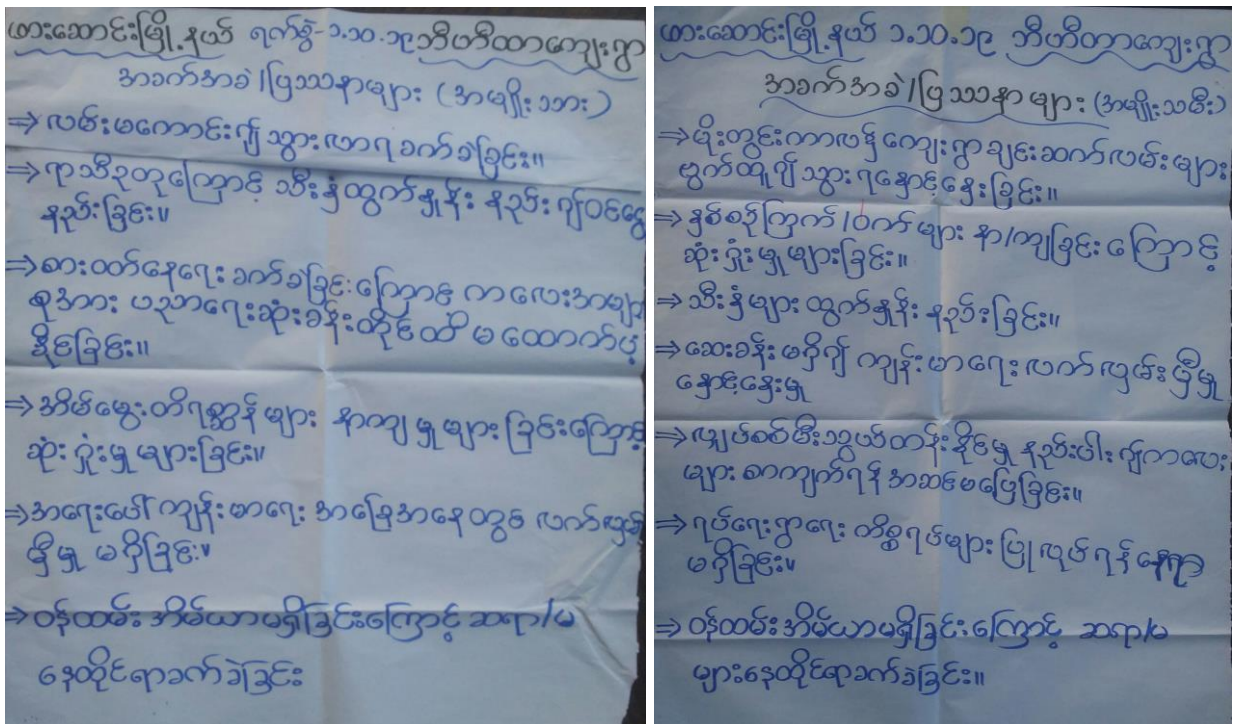 ဖားဆောင်းမြို့နယ် ရက်စွဲ-၁.၁၀.၁၉ ဘီဟီထာကျေးရွာ
အခက်အခဲ/ပြဿနာများ (အမျိုးသား)
⇒ လမ်းမကောင်း၍ သွားလာရ ခက်ခဲခြင်း။
⇒ ရာသီဥတုကြောင့် သီးနှံထွက်နှုန်း နည်း၍ဝင်ငွေ
နည်းခြင်း။
⇒ စားဝတ်နေရေး ခက်ခဲခြင်းကြောင့် ကလေးအများ
စုအား ပညာရေးဆုံးခန်းတိုင်ထိ မထောက်ပံ့
နိုင်ခြင်း။
⇒ အိမ်မွေးတိရစ္ဆာန်များ နာကျမှုများခြင်းကြောင့်
ဆုံးရှုံးမှုများခြင်း။
⇒ အရေးပေါ် ကျန်းမာရေး အခြေအနေတွင် လက်လှမ်း
မှီမှု မရှိခြင်း။
⇒ ဝန်ထမ်းအိမ်ယာမရှိခြင်းကြောင့် ဆရာ/မ
နေထိုင်ရာခက်ခဲခြင်း
ဖားဆောင်းမြို့နယ် ၁.၁၀.၁၉ ဘီဟီတာကျေးရွာ
အခက်အခဲ/ပြဿနာများ (အမျိုးသမီး)
⇒ မိုးတွင်းကာလ၌ ကျေးရွာချင်းဆက်လမ်းများ
ဗွက်ထူ၍ သွားရနှောင့်နှေးခြင်း။
⇒ နှစ်စဉ်ကြက်/ဝက်များ နာ/ကျခြင်းကြောင့်
ဆုံးရှုံးမှုများခြင်း။
⇒ သီးနှံများထွက်နှုန်း နည်းခြင်း။
⇒ ဆေးခန်းမရှိ၍ ကျန်းမာရေးလက်လှမ်းမှီမှု
နှောင့်နှေးမှု
⇒ လျှပ်စစ်မီးသွယ်တန်းနိုင်မှု နည်းပါး၍ကလေး
များ စာကျက်ရန်အဆင်မပြေခြင်း။
⇒ ရပ်ရေးရွာရေး ကိစ္စရပ်များပြုလုပ်ရန်နေရာ
မရှိခြင်း။
⇒ ဝန်ထမ်းအိမ်ယာမရှိခြင်းကြောင့် ဆရာ/မ
များနေထိုင်ရာခက်ခဲခြင်း။